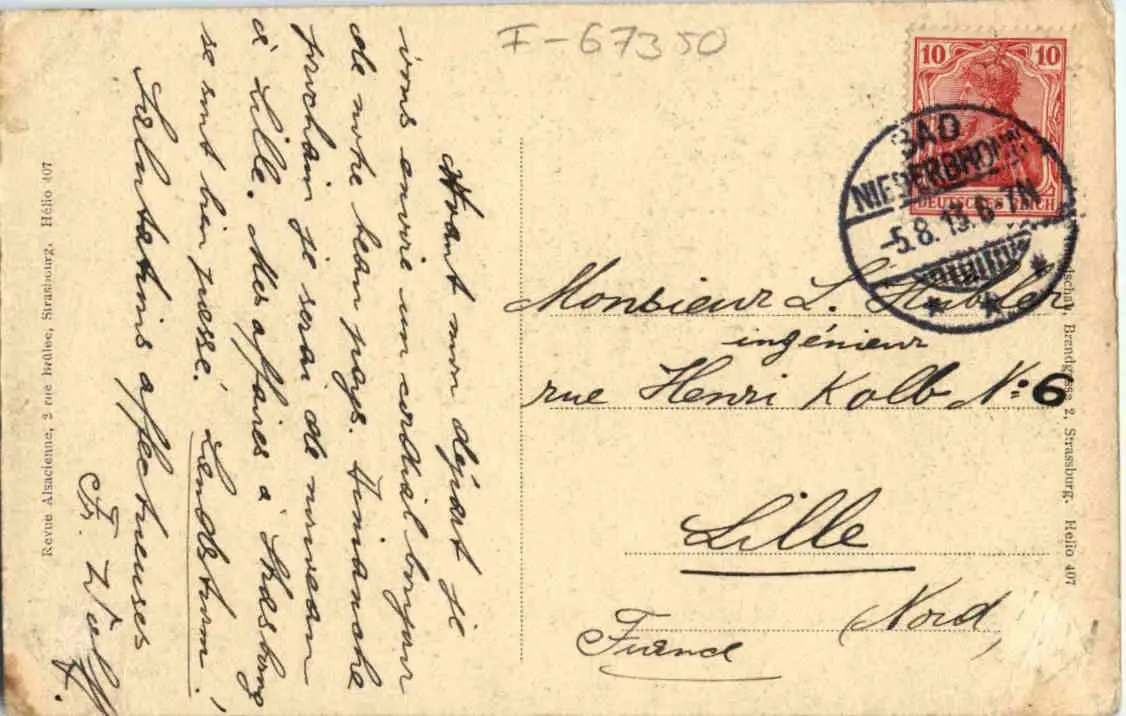 F-67350
Avant mon départ je
vous envoie un cordial bonjour
de notre beau pays. Dimanche
prochain je serai de nouveau
à Lille. Mes affaires à Strasbourg
se sont bien passé. Landsturm!
Salutations affectueuses
Fr. Wolff.
10 10
DEUTSCHES REICH
BAD
NIEDERBRONN
-5.8.13. 6-7N
Monsieur L.
ingénieur
rue Henri Kolb N: 6
Lille
Nord
France
Revue Alsacienne, 2 rue Brûlée, Strasbourg. Hélio 407
Brandgasse 2, Strassburg. Helio 407